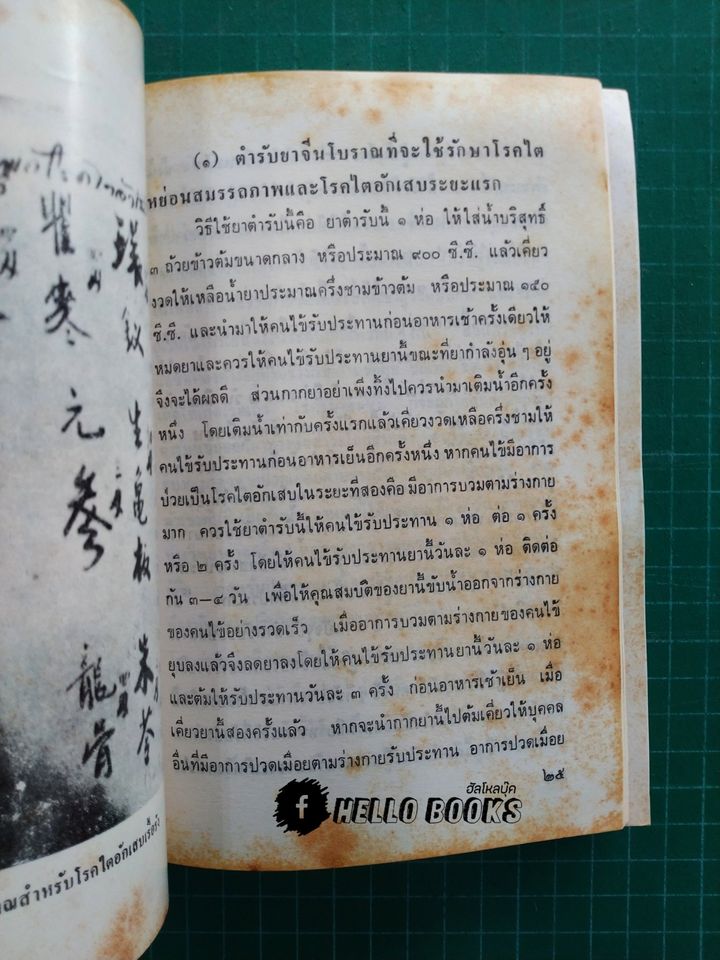 瞿麦
元参
龍骨
生龜板
茯苓
ณสำหรับโรคไตอักเสบเรื้อรัง
(๑) ตำรับยาจีนโบราณที่จะใช้รักษาโรคไต
หย่อนสมรรถภาพและโรคไตอักเสบระยะแรก
วิธีใช้ยาตำรับนี้คือ ยาตำรับนี้ ๑ ห่อ ให้ใส่น้ำบริสุทธิ์
๓ ถ้วยข้าวต้มขนาดกลาง หรือประมาณ ๙๐๐ ซี.ซี. แล้วเคี่ยว
งวดให้เหลือน้ำยาประมาณครึ่งชามข้าวต้ม หรือประมาณ ๑๕๐
ซี.ซี. และนำมาให้คนไข้รับประทานก่อนอาหารเช้าครั้งเดียวให้
หมดยาและควรให้คนไข้รับประทานยานี้ขณะที่ยากำลังอุ่น ๆ อยู่
จึงจะได้ผลดี ส่วนกากยาอย่าเพิ่งทิ้งไปควรนำมาเติมน้ำอีกครั้ง
หนึ่ง โดยเติมน้ำเท่ากับครั้งแรกแล้วเคี่ยวงวดเหลือครึ่งชามให้
คนไข้รับประทานก่อนอาหารเย็นอีกครั้งหนึ่ง หากคนไข้มีอาการ
ป่วยเป็นโรคไตอักเสบในระยะที่สองคือ มีอาการบวมตามร่างกาย
มาก ควรใช้ยาตำรับนี้ให้คนไข้รับประทาน ๑ ห่อ ต่อ ๑ ครั้ง
หรือ ๒ ครั้ง โดยให้คนไข้รับประทานยานี้วันละ ๑ ห่อ ติดต่อ
กัน ๓–๔ วัน เพื่อให้คุณสมบัติของยานี้ขับน้ำออกจากร่างกาย
ของคนไข้อย่างรวดเร็ว เมื่ออาการบวมตามร่างกายของคนไข้
ยุบลงแล้วจึงลดยาลงโดยให้คนไข้รับประทานยานี้วันละ ๑ ห่อ
และต้มให้รับประทานวันละ ๓ ครั้ง ก่อนอาหารเช้าเย็น เมื่อ
เคี่ยวยานี้สองครั้งแล้ว หากจะนำกากยานี้ไปต้มเคี่ยวให้บุคคล
อื่นที่มีอาการปวดเมื่อยตามร่างกายรับประทาน อาการปวดเมื่อย
๒๕
ฮัลโหลบุ๊ค
f HELLO BOOKS